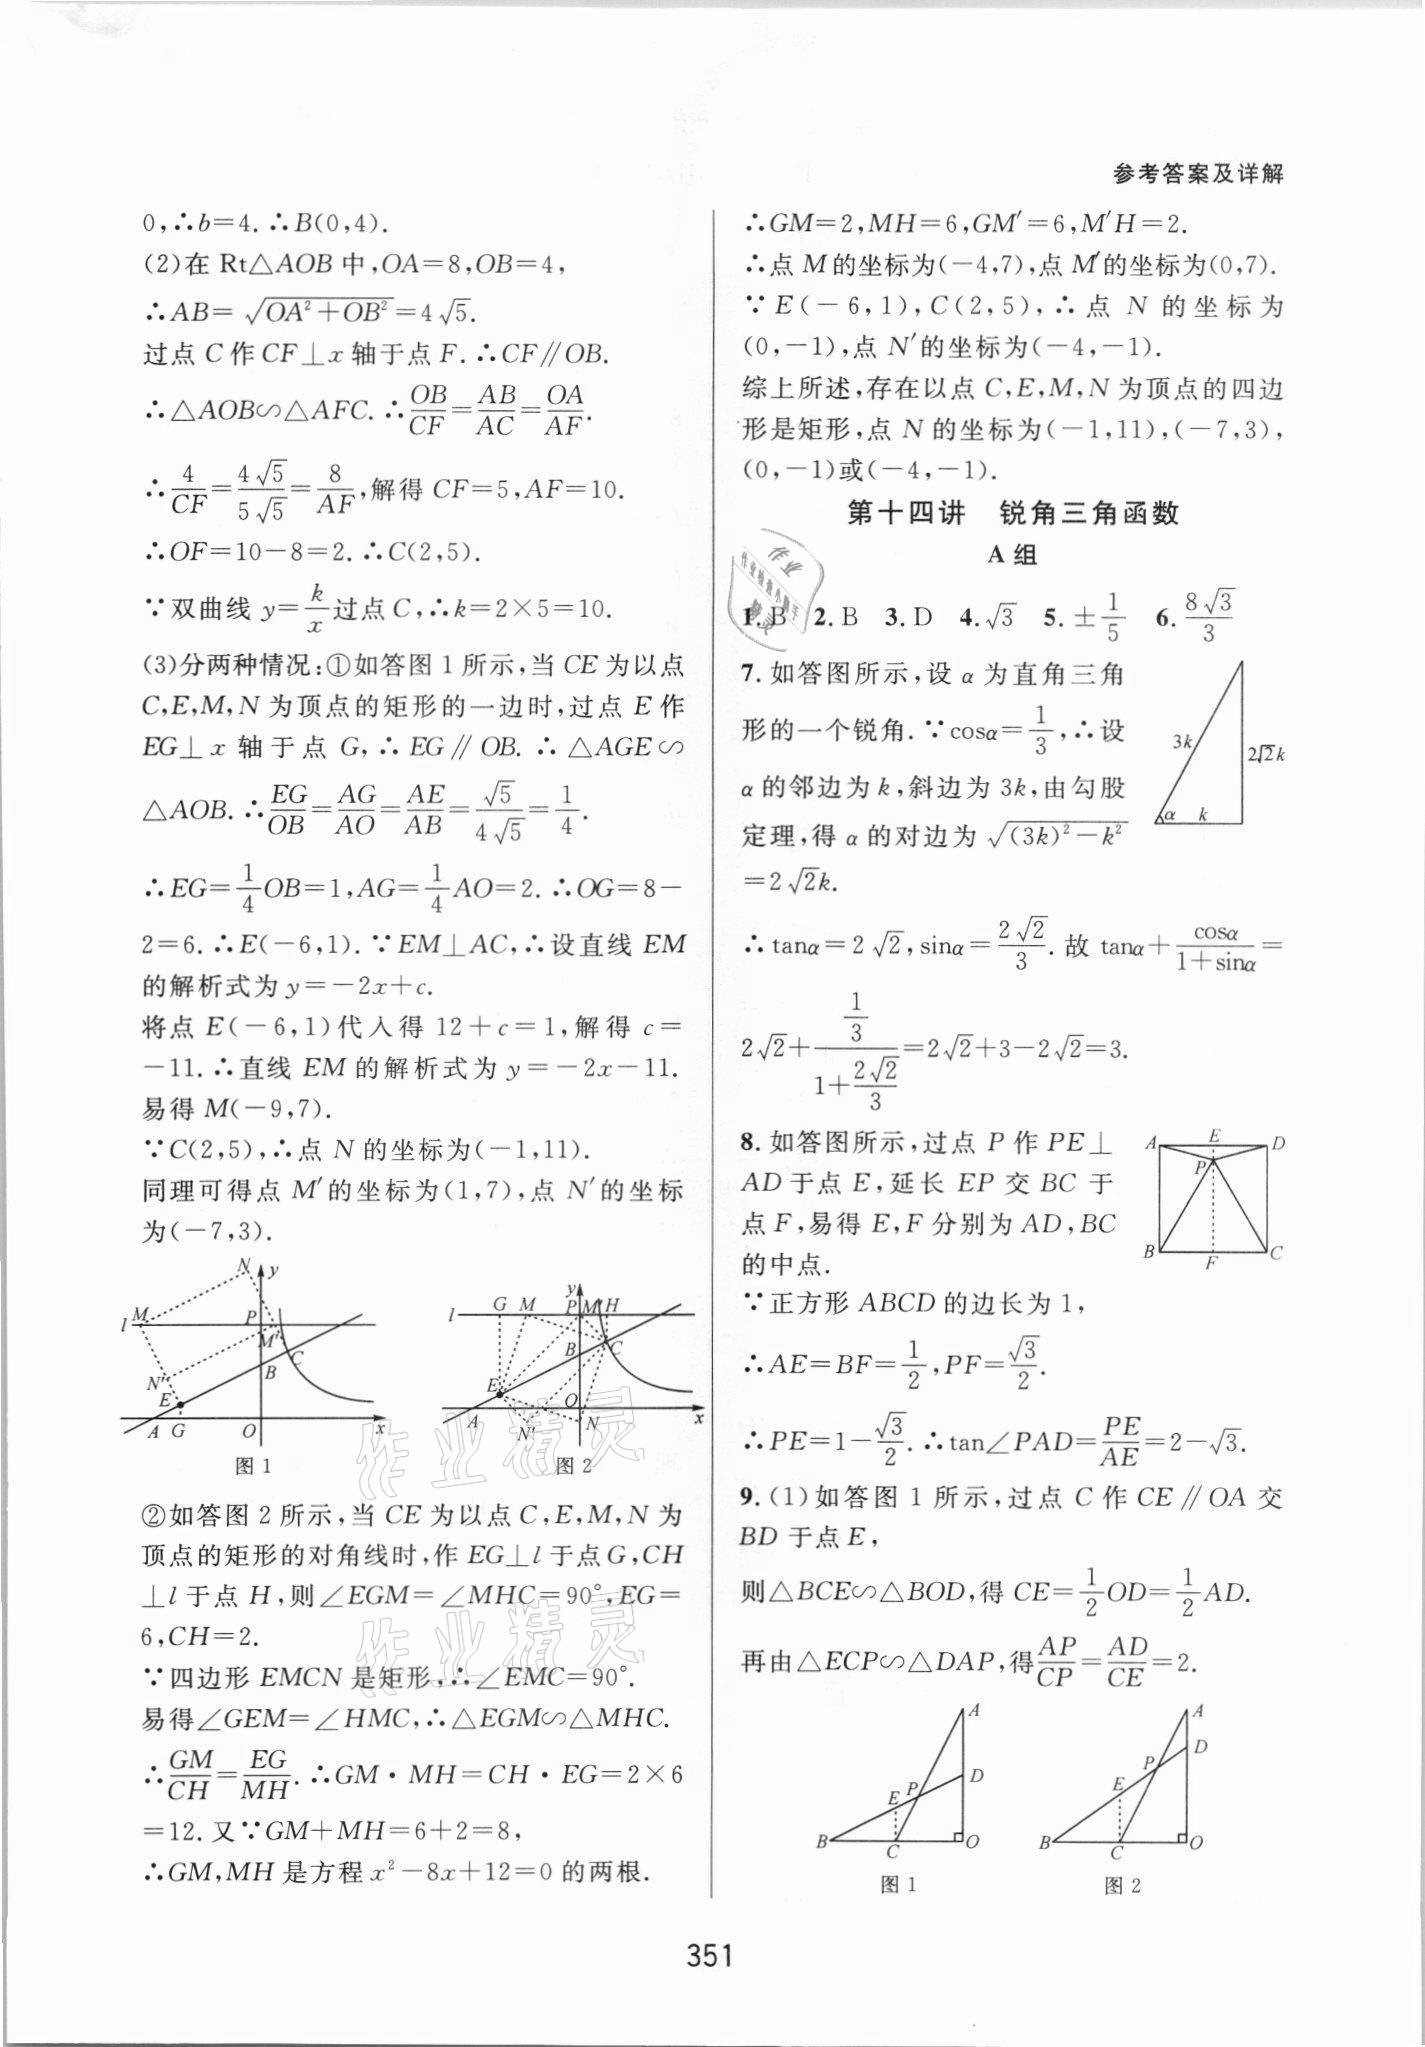 参考答案及详解
0,∴b=4.∴B(0,4).
(2)在 Rt△AOB 中,OA=8,OB=4,
∴AB=√(OA²+OB²)=4√5.
过点 C 作 CF⊥x 轴于点 F.∴CF∥OB.
∴△AOB∽△AFC.∴OB/CF=AB/AC=OA/AF.
∴4/CF=4√5/5√5=8/AF,解得 CF=5,AF=10.
∴OF=10-8=2.∴C(2,5).
∵双曲线 y=k/x过点 C,∴k=2×5=10.
(3)分两种情况:①如答图 1 所示,当 CE 为以点
C,E,M,N 为顶点的矩形的一边时,过点 E 作
EG⊥x 轴于点 G,∴EG∥OB.∴△AGE∽
△AOB.∴EG/OB=AG/AO=AE/AB=√5/4√5=1/4.
∴EG=1/4OB=1,AG=1/4AO=2.∴OG=8-
2=6.∴E(-6,1).∵EM⊥AC,∴设直线 EM
的解析式为 y=-2x+c.
将点 E(-6,1)代入得 12+c=1,解得 c=
-11.∴直线 EM 的解析式为 y=-2x-11.
易得 M(-9,7).
∵C(2,5),∴点 N 的坐标为(-1,11).
同理可得点 M′的坐标为(1,7),点 N′的坐标
为(-7,3).
N y
M
l P
M′
C
B
N′
E
A G O x
图 1
y
l G M P M′ H
B C
E
A O x
N′ N
图 2
②如答图 2 所示,当 CE 为以点 C,E,M,N 为
顶点的矩形的对角线时,作 EG⊥l 于点 G,CH
⊥l 于点 H,则∠EGM=∠MHC=90°,EG=
6,CH=2.
∵四边形 EMCN 是矩形,∴∠EMC=90°.
易得∠GEM=∠HMC,∴△EGM∽△MHC.
∴GM/CH=EG/MH.∴GM·MH=CH·EG=2×6
=12.又∵GM+MH=6+2=8,
∴GM,MH 是方程 x²-8x+12=0 的两根.
∴GM=2,MH=6,GM′=6,M′H=2.
∴点 M 的坐标为(-4,7),点 M′的坐标为(0,7).
∵E(-6,1),C(2,5),∴点 N 的坐标为
(0,-1),点 N′的坐标为(-4,-1).
综上所述,存在以点 C,E,M,N 为顶点的四边
形是矩形,点 N 的坐标为(-1,11),(-7,3),
(0,-1)或(-4,-1).
第十四讲 锐角三角函数
A 组
1.B 2.B 3.D 4.√3 5.±1/5 6.8√3/3
7.如答图所示,设 α 为直角三角
形的一个锐角.∵cosα=1/3,∴设
α 的邻边为 k,斜边为 3k,由勾股
定理,得 α 的对边为√((3k)²-k²)
=2√2k.
3k
2√2k
α k
∴tanα=2√2,sinα=2√2/3.故 tanα+cosα/(1+sinα)=
2√2+(1/3)/(1+2√2/3)=2√2+3-2√2=3.
8.如答图所示,过点 P 作 PE⊥
AD 于点 E,延长 EP 交 BC 于
点 F,易得 E,F 分别为 AD,BC
的中点.
A E D
P
B F C
∵正方形 ABCD 的边长为 1,
∴AE=BF=1/2,PF=√3/2.
∴PE=1-√3/2.∴tan∠PAD=PE/AE=2-√3.
9.(1)如答图 1 所示,过点 C 作 CE∥OA 交
BD 于点 E,
则△BCE∽△BOD,得 CE=1/2OD=1/2AD.
再由△ECP∽△DAP,得AP/CP=AD/CE=2.
A
D
E P
B C O
图 1
A
D
P
E
B C O
图 2
351
作业
作业检查小助手
精灵
作业精灵
作业精灵